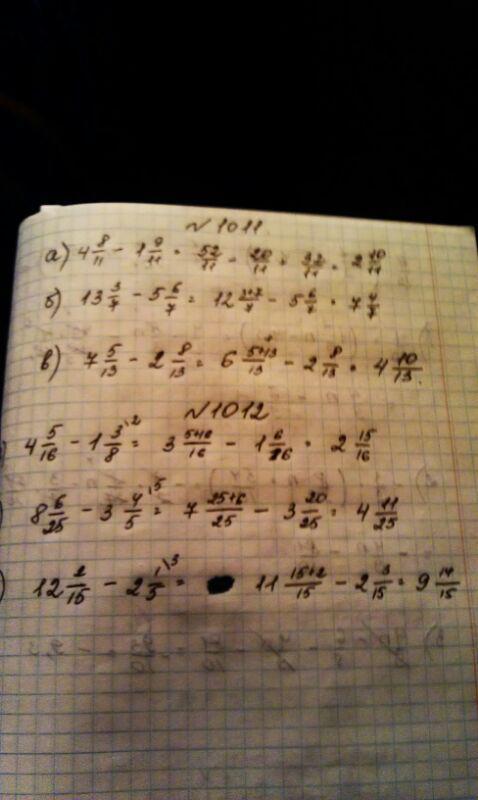 № 1011.
а) 4 8/11 - 1 9/11 = 52/11 - 20/11 = 32/11 = 2 10/11
б) 13 3/7 - 5 6/7 = 12 3+7/7 - 5 6/7 = 7 4/7
в) 7 5/13 - 2 8/13 = 6 5+13/13 - 2 8/13 = 4 10/13.
№ 1012
4 5/16 - 1 3/8 \2 = 3 5+16/16 - 1 6/16 = 2 15/16
8 6/25 - 3 4/5 \5 = 7 25+6/25 - 3 20/25 = 4 11/25
) 12 2/15 - 2 1/5 \3 = 11 15+2/15 - 2 3/15 = 9 14/15